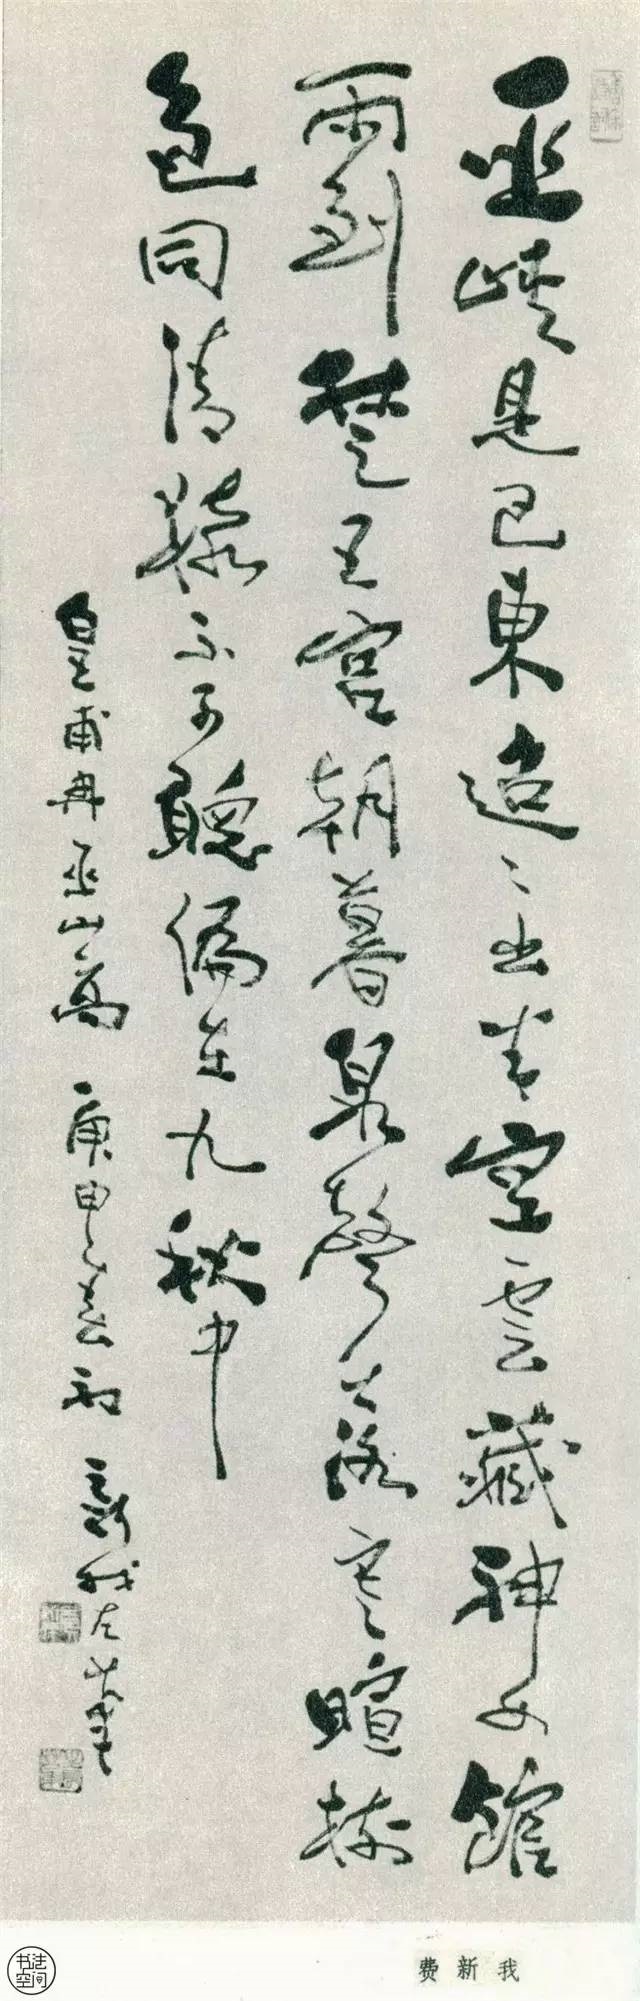 巫峡是巴東迢〻出半空雲藏神女館
雨到楚王宫朝暮泉聲落寒暄樹
色同清猿不可聽偏在九秋中
皇甫冉巫山高 庚申春初 新我左筆
費新我
书法空间